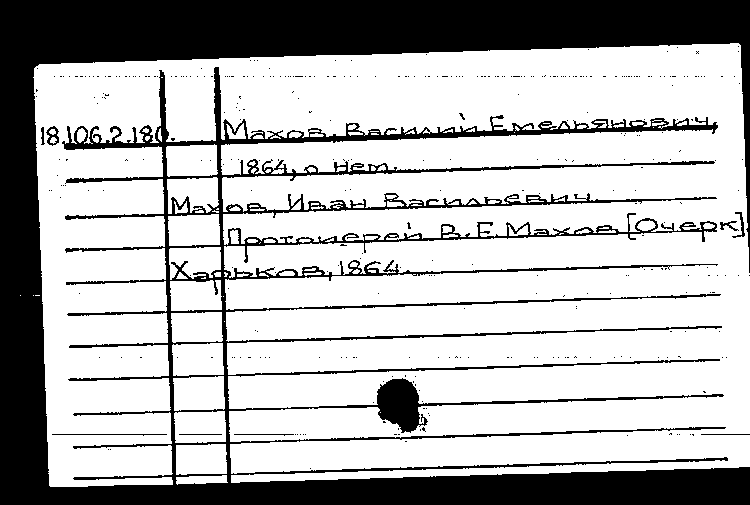 18.106.2.180. Махов, Василий Емельянович,
1864, о нем.
Махов, Иван Васильевич.
Протоиерей В.Е. Махов [Очерк].
Харьков, 1864.